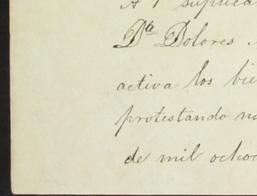 A suplica
Dta Dolores
activa los bie
protestando no
de mil ochoc